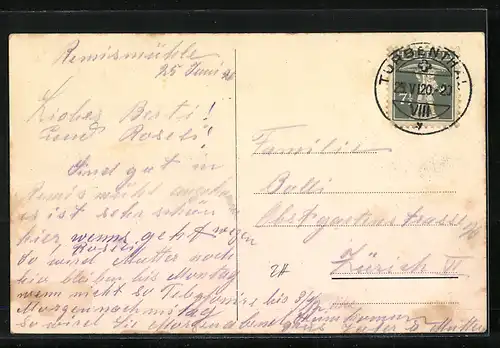 Remismühle
25 Juni 20
Liebes Berti!
und Roseli!
Sind gut in
Remismühle angekommen
es ist sehr schön
hier wenns geht wegen
Rösli
so wird Mutter noch
hie bleiben bis Montag
wenn nicht so Telephonire bis
Morgennachmittag
so wird Sie Morgenabend
Vater & Mutter
TURBENTHAL
25.VI.20.-2
VIII
7½
Familie
Bolli
Obstgartenstrasse
Zürich VI